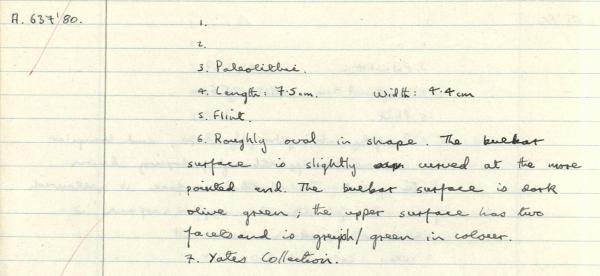 A. 637'80.
1.
2.
3. Paleolithic.
4. Length: 7.5cm. Width: 4.4cm
5. Flint.
6. Roughly oval in shape. The bulbar
surface is slightly curved at the more
pointed end. The bulbar surface is dark
olive green; the upper surface has two
facets and is greyish/green in colour.
7. Yates Collection.